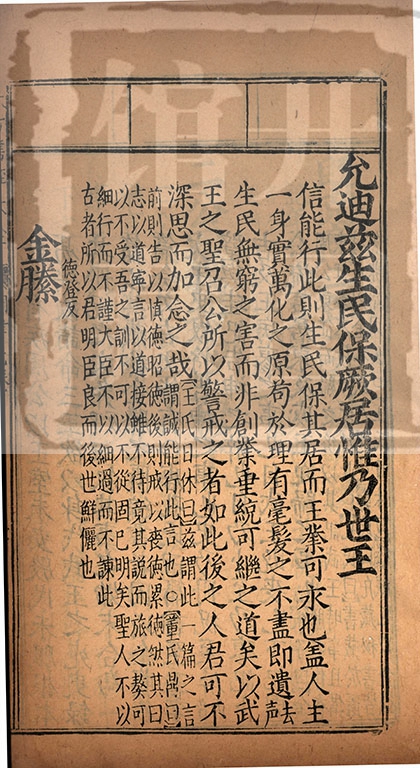 允迪茲生民保厥居惟乃世王
信能行此則生民保其居而王業可永也盖人主
一身實萬化之原苟於理有毫髮之不盡即遺去声
生民無窮之害而非創業垂統可繼之道矣以武
王之聖召公所以警戒之者如此後之人君可不
深思而加念之哉
王氏曰休曰茲謂此一篇之言
謂誠能行此言也○董氏鼎曰
前則告以慎德昭德後則戒以喪德累德然其曰
志以道寧言以道接雖不待竟其說而旅之獒可
以不受吾之訓不可以不從固已明矣聖人不以
細行而不謹大臣不以細過而不諫此
古者所以君明臣良而後世鮮儷也
金縢